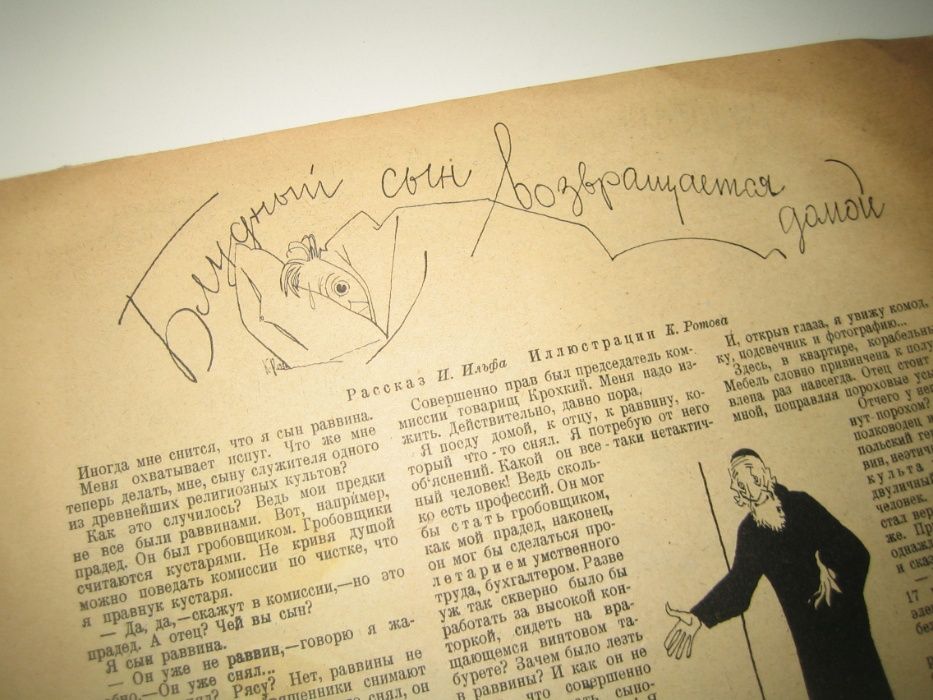 Блудный сын возвращается
домой
Рассказ И. Ильфа Иллюстрации К. Ротова
Иногда мне снится, что я сын раввина.
Меня охватывает испуг. Что же мне
теперь делать, мне, сыну служителя одного
из древнейших религиозных культов?
Как это случилось? Ведь мои предки
не все были раввинами. Вот, например,
прадед. Он был гробовщиком. Гробовщики
считаются кустарями. Не кривя душой
можно поведать комиссии по чистке, что
я правнук кустаря.
— Да, да,—скажут в комиссии,—но это
прадед. А отец? Чей вы сын?
Я сын раввина.
— Он уже не раввин,—говорю я жа-
бно.—Он уже снял...
Рясу? Нет, раввины не
снимают
снял, он
Совершенно прав был председатель ком-
миссии товарищ Крохкий. Меня надо из-
жить. Действительно, давно пора.
Я поеду домой, к отцу, к раввину, ко-
торый что-то снял. Я потребую от него
об'яснений. Какой он все-таки нетактич-
ный человек! Ведь сколь-
ко есть профессий. Он мог
бы стать гробовщиком,
как мой прадед, наконец,
он мог бы сделаться про-
летарием умственного
труда, бухгалтером. Разве
уж так скверно было бы
работать за высокой кон-
торкой, сидеть на вра-
щающемся винтовом та-
бурете? Зачем было лезть
в раввины? И как он не
что совершенно
сыно-
И, открыв глаза, я увижу комод,
ку, подсвечник и фотографию...
Здесь, в квартире, корабельны
Мебель словно привинчена к полу
влена раз навсегда. Отец стоит
мной, поправляя пороховые усы
Отчего у не
нут порохом?
полководец и
польский ген
вин, неэтич
культа
двуличны
человек.
стал вер
же. При
однажд
и сказ
17
эле
бе